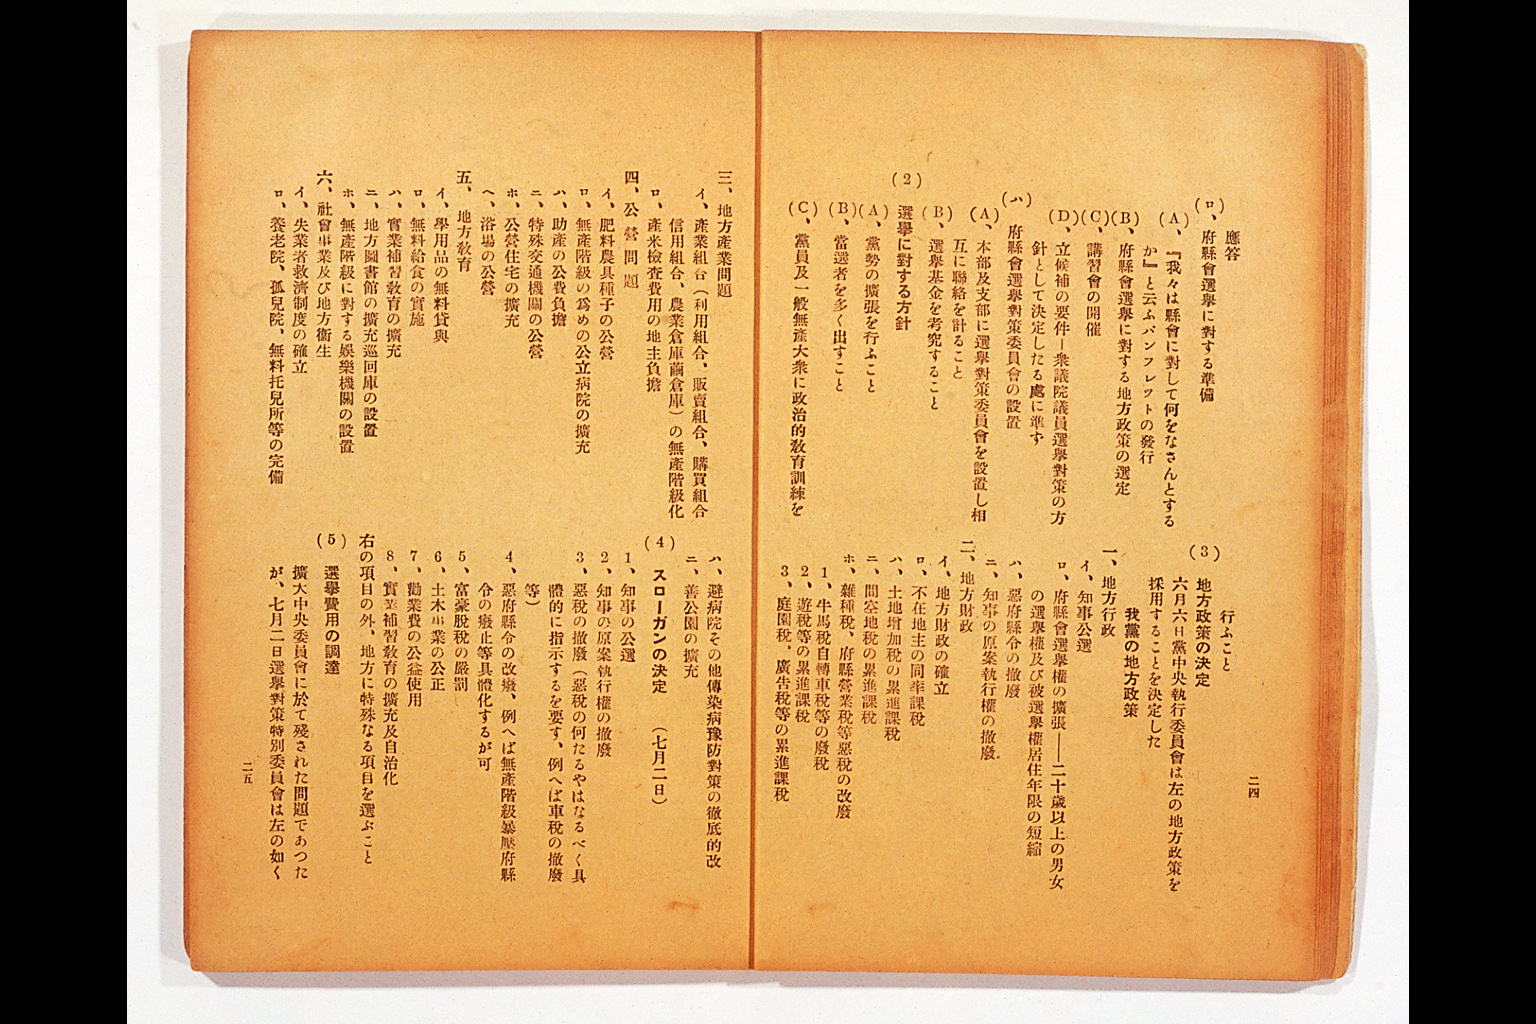 應答
(ロ)、府縣會選擧に對する準備
(A)、『我々は縣會に對して何をなさんとする
か』と云ふパンフレットの發行
(B)、府縣會選擧に對する地方政策の選定
(C)、講習會の開催
(D)、立候補の要件―衆議院議員選擧對策の方
針として決定したる處に準す
(ハ)、府縣會選擧對策委員會の設置
(A)、本部及支部に選擧對策委員會を設置し相
互に聯絡を計ること
(B)、選擧基金を考究すること
(2) 選擧に對する方針
(A)、黨勢の擴張を行ふこと
(B)、當選者を多く出すこと
(C)、黨員及一般無產大衆に政治的敎育訓練を
行ふこと
(3) 地方政策の決定
六月六日黨中央執行委員會は左の地方政策を
採用することを決定した
我黨の地方政策
一、地方行政
イ、知事公選
ロ、府縣會選擧權の擴張――二十歲以上の男女
の選擧權及び被選擧權居住年限の短縮
ハ、惡府縣令の撤廢
ニ、知事の原案執行權の撤廢
二、地方財政
イ、地方財政の確立
ロ、不在地主の同率課稅
ハ、土地增加稅の累進課稅
ニ、間空地稅の累進課稅
ホ、雜種稅、府縣營業稅等惡稅の改廢
1、牛馬稅自轉車稅等の廢稅
2、遊稅等の累進課稅
3、庭園稅、廣告稅等の累進課稅
二四
三、地方產業問題
イ、產業組合(利用組合、販賣組合、購買組合
信用組合、農業倉庫繭倉庫)の無產階級化
ロ、產米檢査費用の地主負擔
四、公營問題
イ、肥料農具種子の公營
ロ、無產階級の爲めの公立病院の擴充
ハ、助產の公費負擔
ニ、特殊交通機關の公營
ホ、公營住宅の擴充
ヘ、浴場の公營
五、地方敎育
イ、學用品の無料貸與
ロ、無料給食の實施
ハ、實業補習敎育の擴充
ニ、地方圖書館の擴充巡回庫の設置
ホ、無產階級に對する娛樂機關の設置
六、社會事業及び地方衞生
イ、失業者救濟制度の確立
ロ、養老院、孤兒院、無料托兒所等の完備
ハ、避病院その他傳染病豫防對策の徹底的改
ニ、善公園の擴充
(4) スローガンの決定 (七月二日)
1、知事の公選
2、知事の原案執行權の撤廢
3、惡稅の撤廢(惡稅の何たるやはなるべく具
體的に指示するを要す、例へば車稅の撤廢
等)
4、惡府縣令の改廢、例へば無產階級暴壓府縣
令の廢止等具體化するが可
5、富豪脫稅の嚴罰
6、土木事業の公正
7、勸業費の公益使用
8、實業補習敎育の擴充及自治化
右の項目の外、地方に特殊なる項目を選ぶこと
(5) 選擧費用の調達
擴大中央委員會に於て殘された問題であつた
が、七月二日選擧對策特別委員會は左の如く
二五